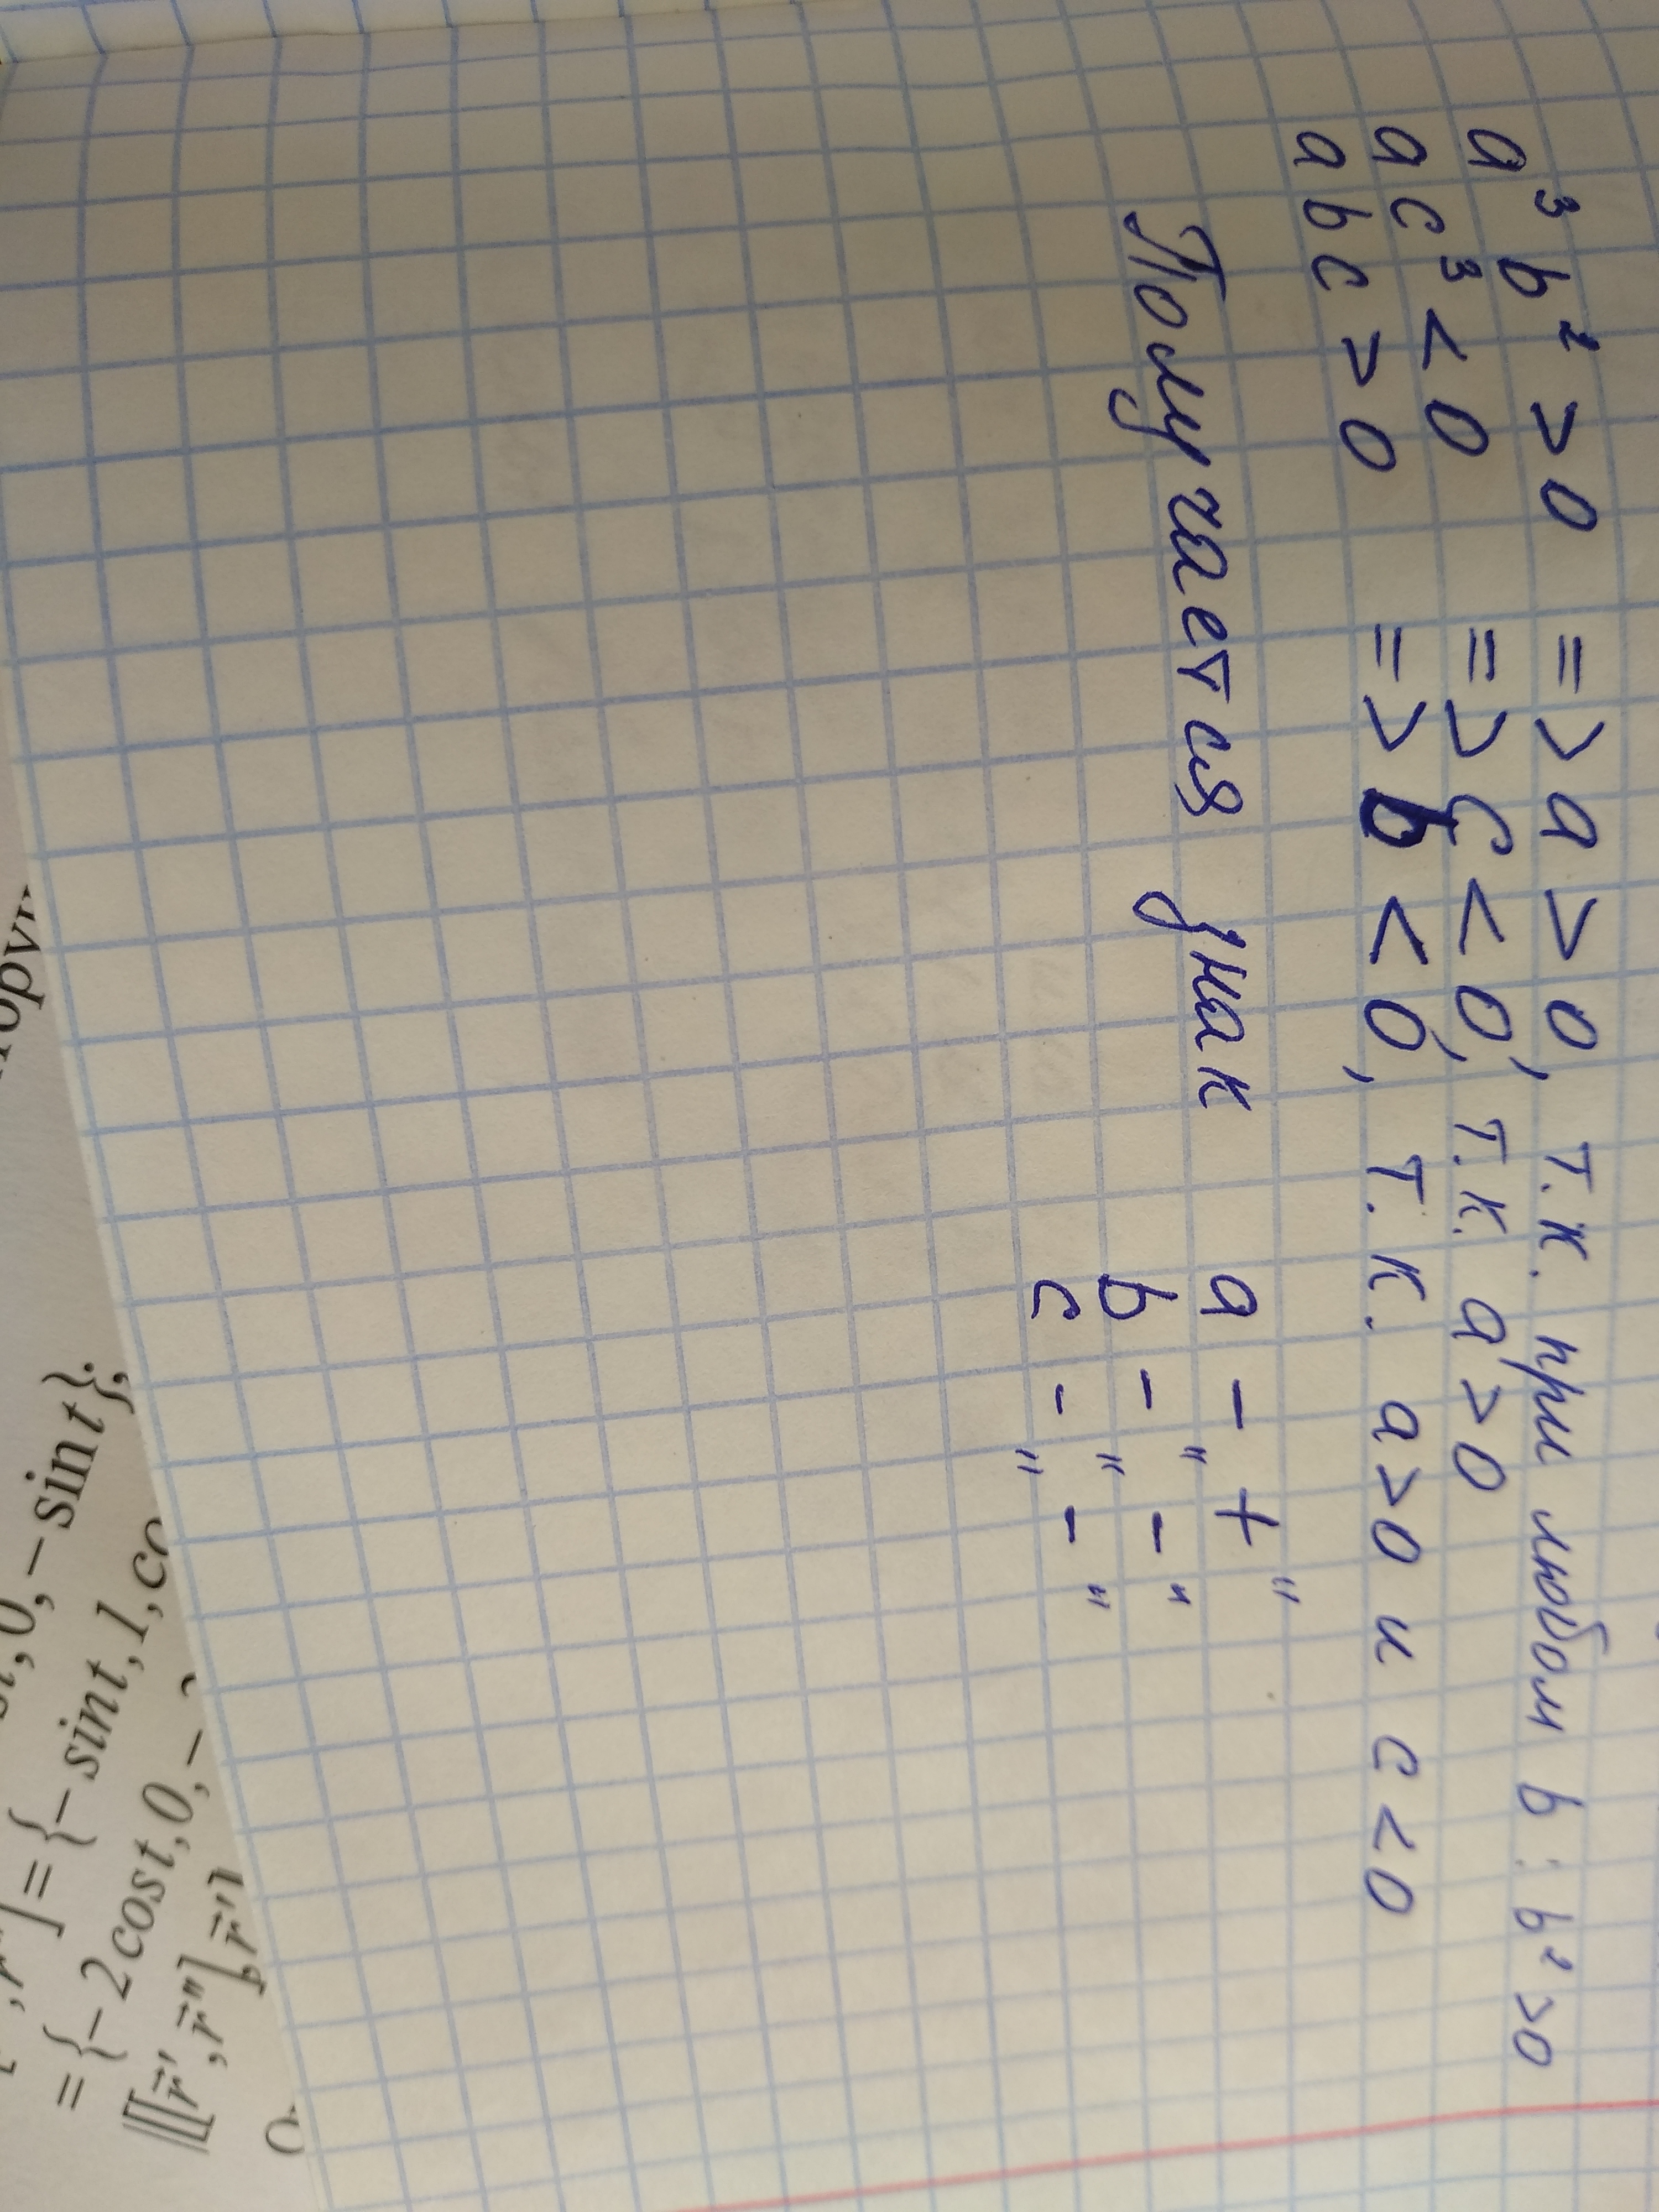 a³ b² > 0 => a > 0, т.к. при любом b : b² > 0
a c³ < 0 => c < 0, т.к. a > 0
a b c > 0 => b < 0, т.к. a > 0 и c < 0
Получается знак a - "+"
b - "-"
c - "-"
, 0, - sin t};
] = {- sin t, 1, co
= {- 2 cos t, 0, -
|[[r⃗′, r⃗″], r⃗′]